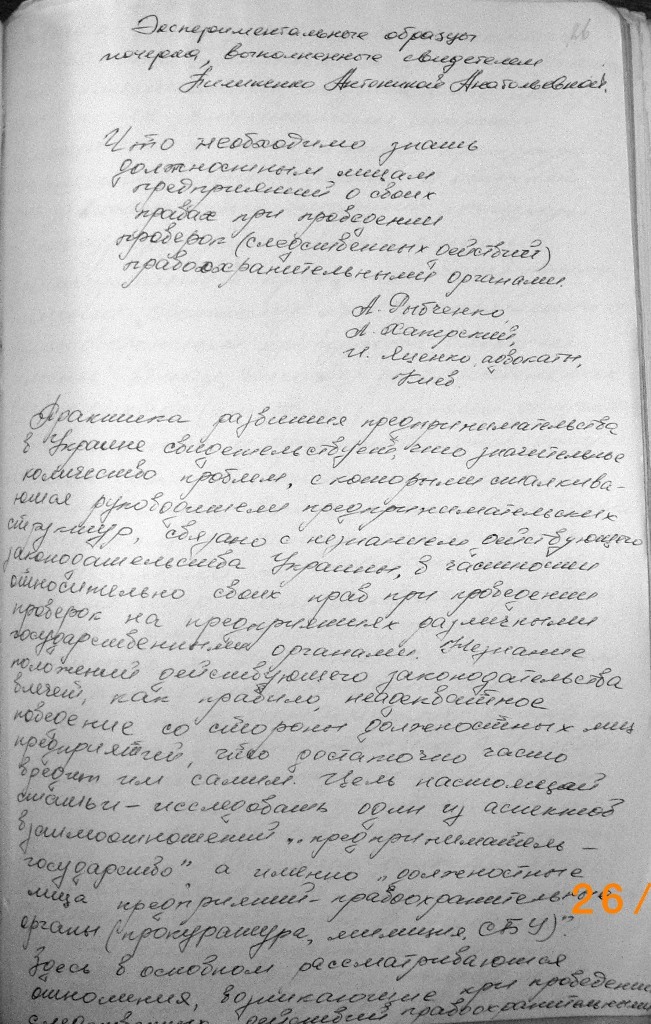 Экспериментальные образцы
почерка, выполненные свидетелем
Антониной Анатольевной.
26
Что необходимо знать
должностным лицам
предприятий о своих
правах при проведении
проверок (следственных действий)
правоохранительными органами.
А. Рыбченко,
А. Хатерский,
И. Яценко, адвокаты,
Киев
Практика развития предпринимательства
в Украине свидетельствует, что значительное
количество проблем, с которыми сталкива-
ются руководители предпринимательских
структур, связано с незнанием действующего
законодательства Украины, в частности
относительно своих прав при проведении
проверок на предприятиях различными
государственными органами. Незнание
положений действующего законодательства
влечет, как правило, неадекватное
поведение со стороны должностных лиц
предприятий, что достаточно часто
вредит им самим. Цель настоящей
статьи – исследовать один из аспектов
взаимоотношений „предприниматель –
государство" а именно „должностные
лица предприятий – правоохранительные
органы (прокуратура, милиция, СБУ)"
Здесь в основном рассматриваются
отношения, возникающие при проведении
следственных действий правоохранительными
26/